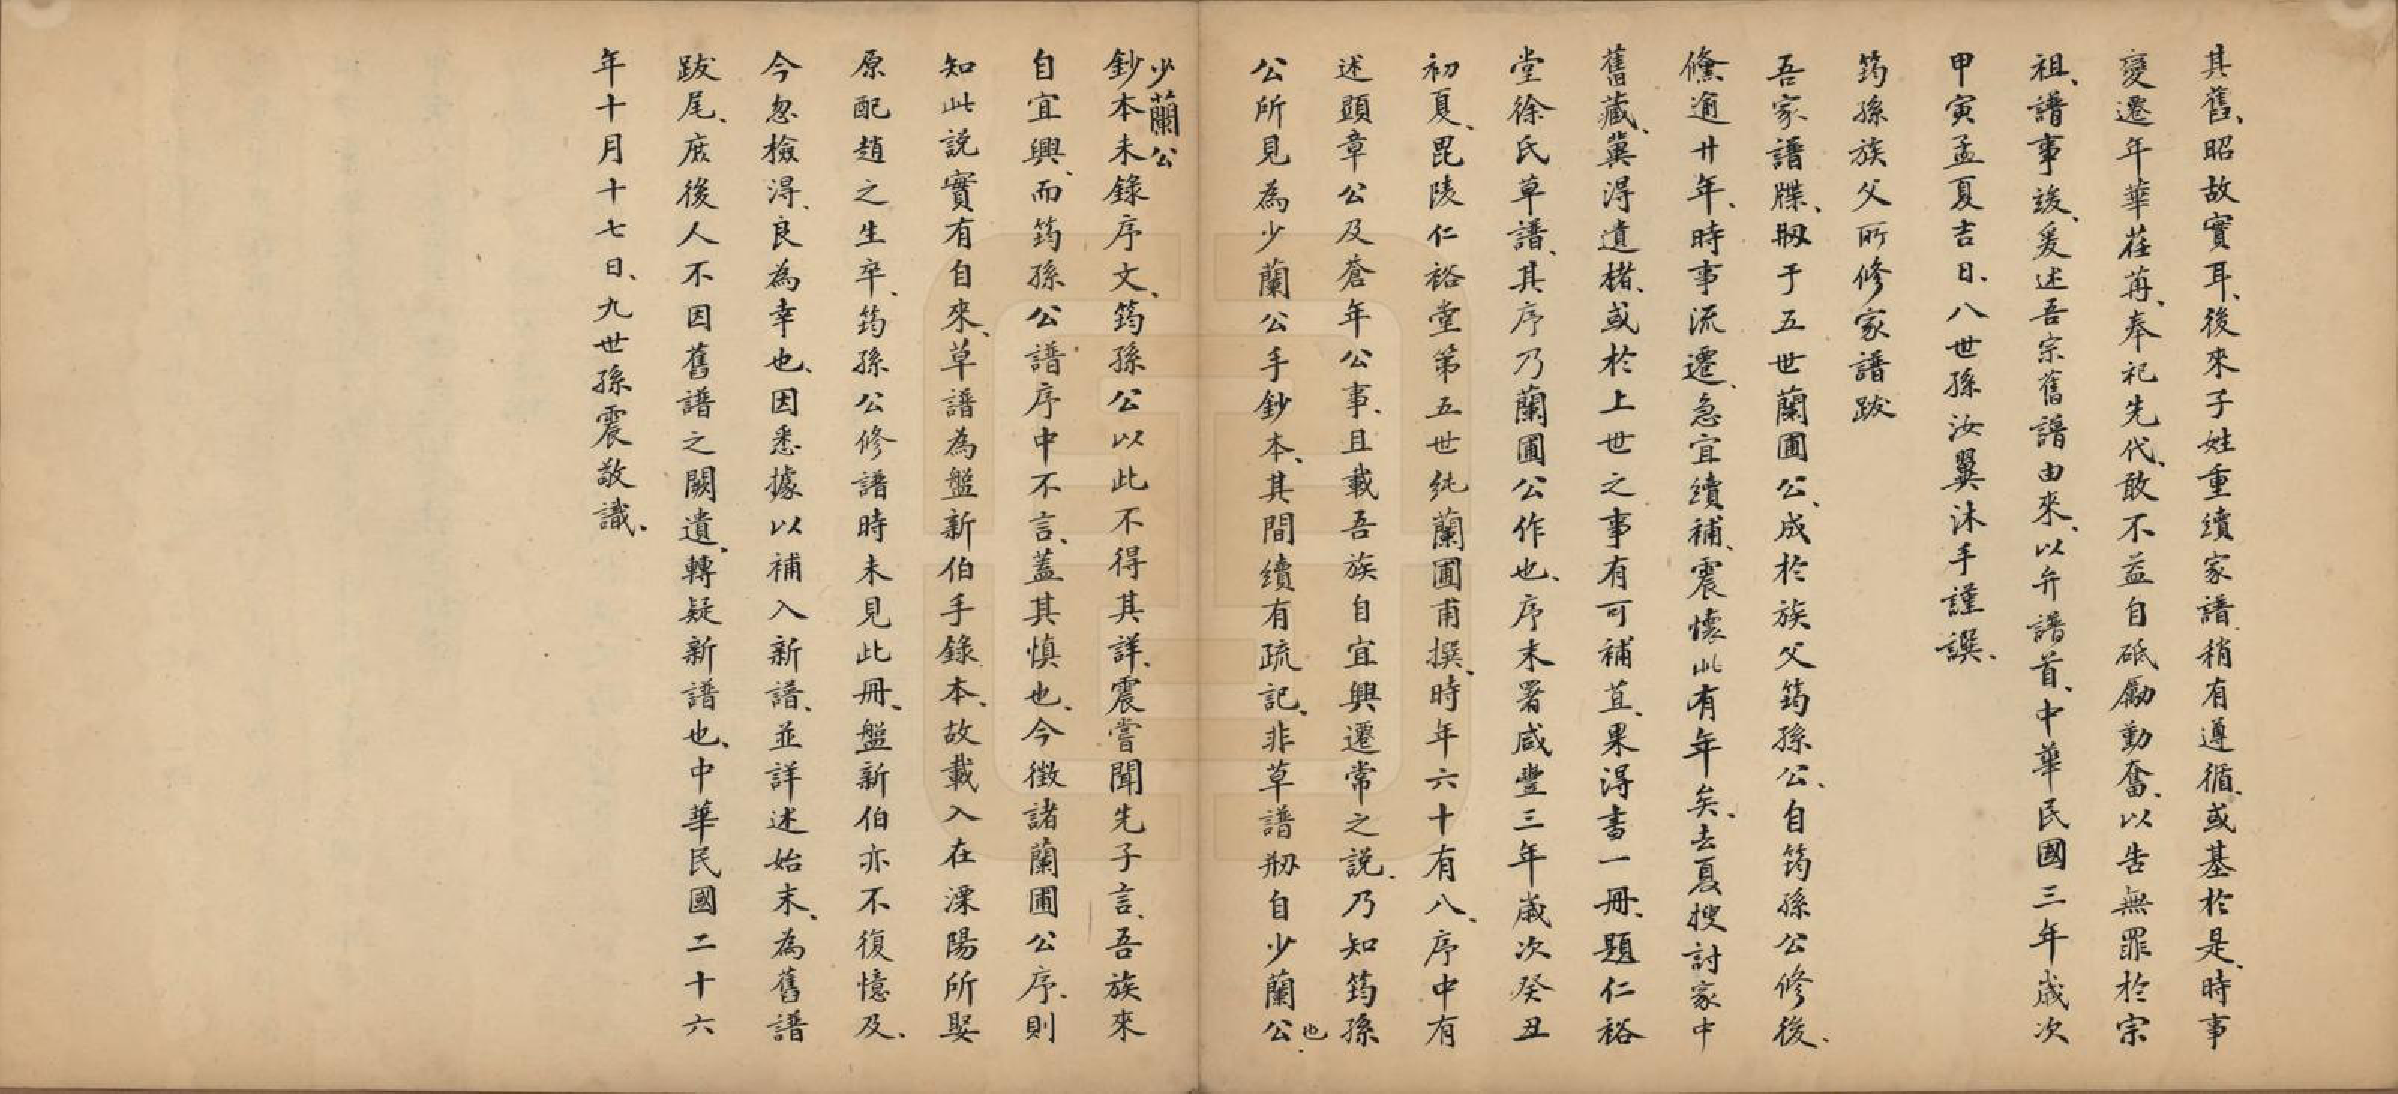 其舊、昭故實耳、後來子姓重續家譜、稍有遵循、或基於是、時事
變遷、年華荏苒、奉祀先代、敢不益自砥勵勤奮、以告無罪於宗
祖、譜事竣、爰述吾宗舊譜由來、以弁譜首、中華民國三年歲次
甲寅孟夏吉日、八世孫汝翼沐手謹譔、
筠孫族父所修家譜跋
吾家譜牒、刱于五世蘭圃公、成於族父筠孫公、自筠孫公修後、
倏逾廿年、時事流遷、急宜續補、震懷此有年矣、去夏搜討家中
舊藏、冀得遺楮、或於上世之事有可補苴、果得書一冊、題仁裕
堂徐氏草譜、其序乃蘭圃公作也、序末署咸豐三年歲次癸丑
初夏、毘陵仁裕堂第五世純蘭圃甫撰、時年六十有八、序中有
述顯章公及蒼年公事、且載吾族自宜興遷常之説、乃知筠孫
公所見為少蘭公手鈔本、其間續有疏記、非草譜刱自少蘭公也、
少蘭公
鈔本未錄序文、筠孫公以此不得其詳、震嘗聞先子言、吾族來
自宜興、而筠孫公譜序中不言、蓋其慎也、今徵諸蘭圃公序、則
知此説實有自來、草譜為盤新伯手錄本、故載入在溧陽所娶
原配趙之生卒、筠孫公修譜時未見此冊、盤新伯亦不復憶及、
今忽檢得、良為幸也、因悉據以補入新譜、並詳述始末、為舊譜
跋尾、庶後人不因舊譜之闕遺、轉疑新譜也、中華民國二十六
年十月十七日、九世孫震敬識、